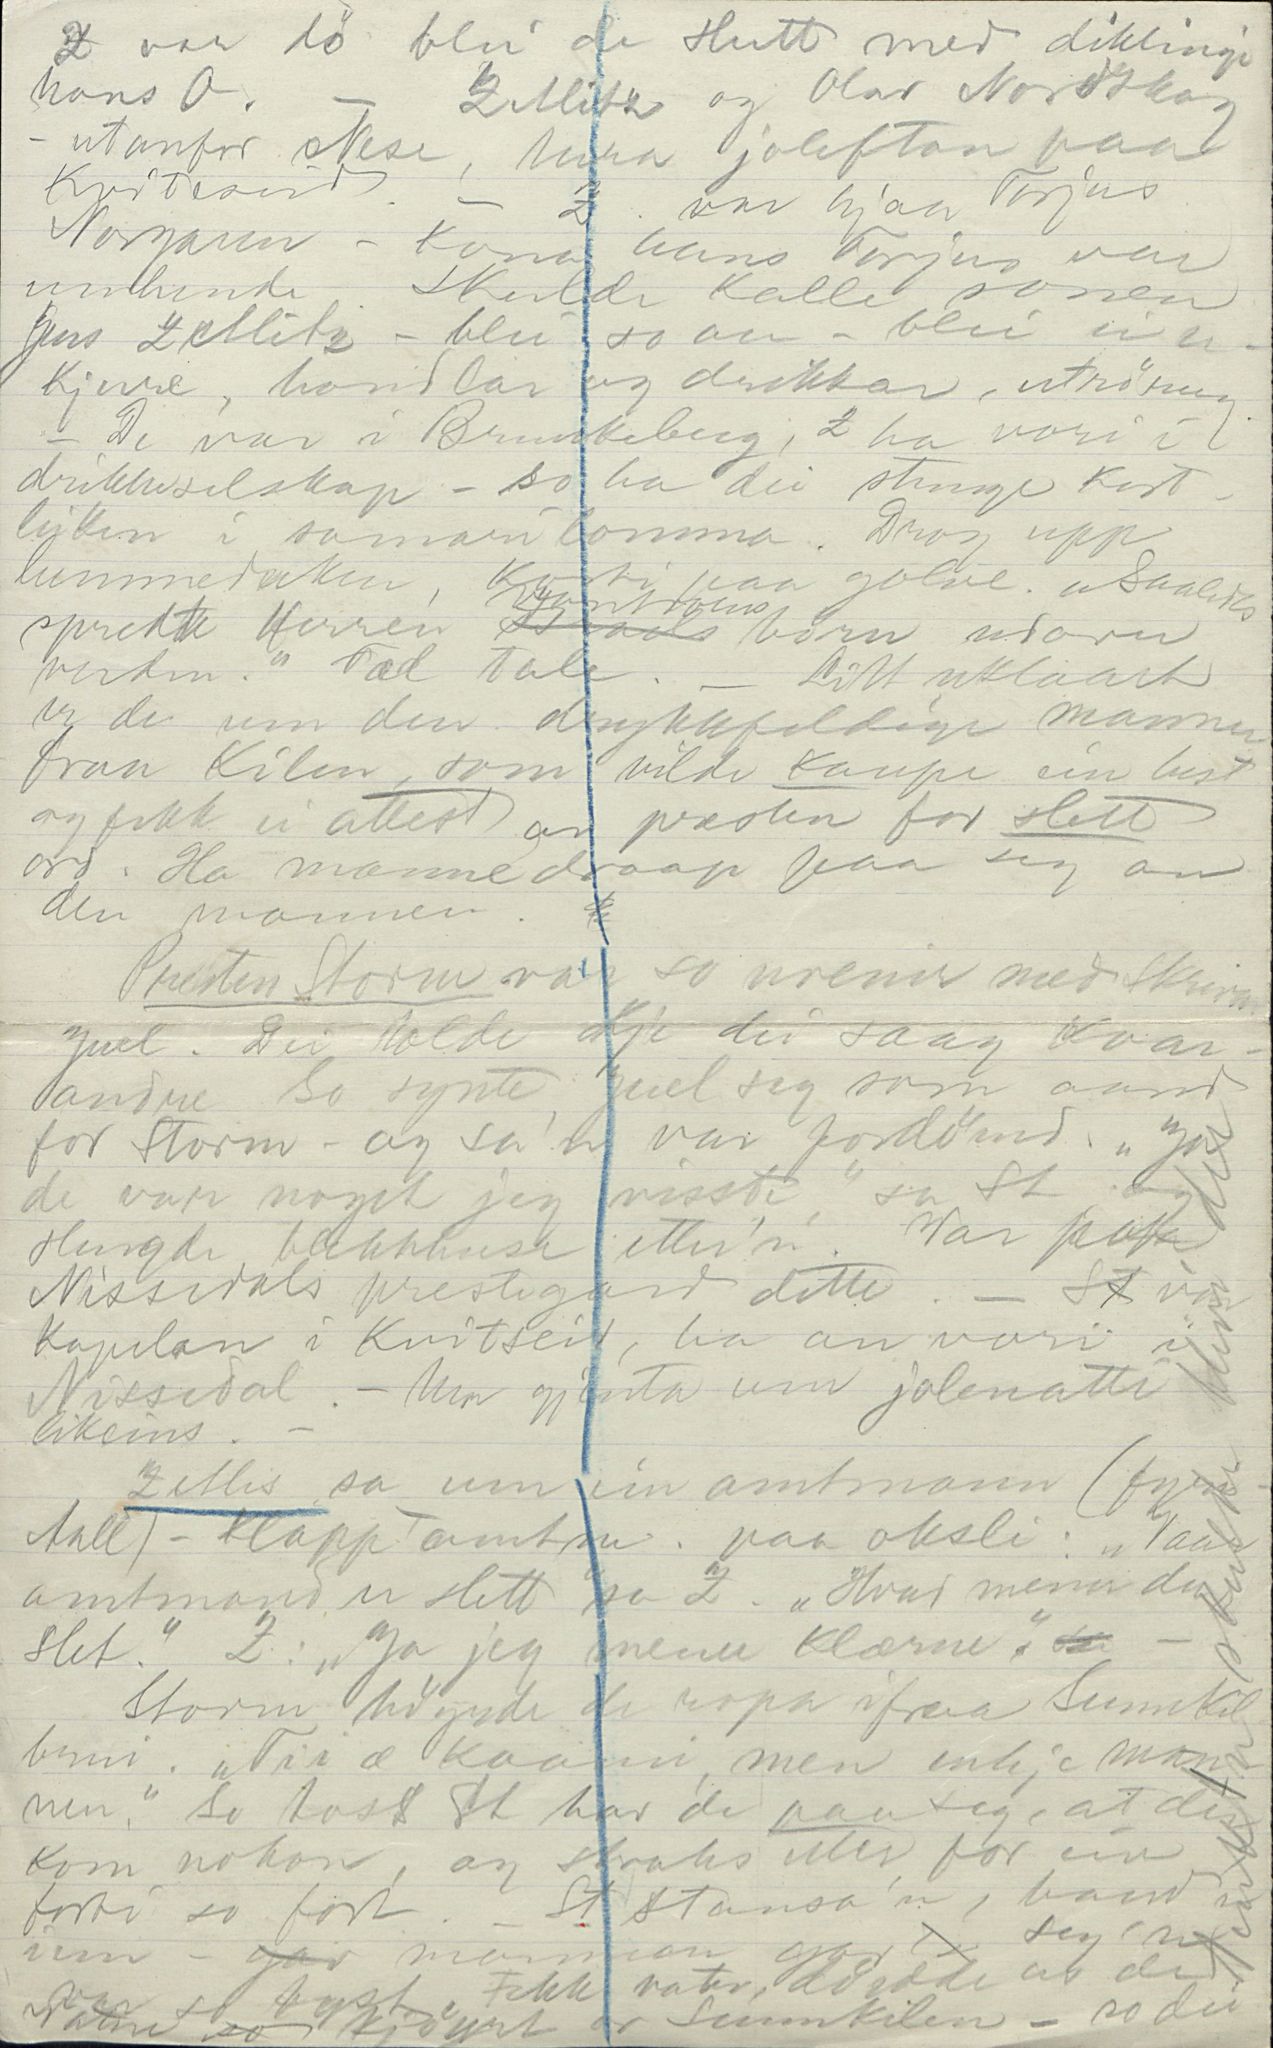 Z var dö blei de slutt med diktingi
hans O. — Zellitz og Olav Nordskog
- utanfor dese, hura joleftan paa
Kviteseid. — Z. var hjaa Torjus
Norgaren - Kona hans Torjus var
umhende. Skulde kalle sonen
Jens Zellitz - blei so au - blei ein u-
kjure, handlar og drikkar, utröveg.
— De var i Brunkeberg, Z ha vori i
drikkeselskap - so ha dei stunge kort-
leiken i samarilomma. Drog upp
lummeduken, korti paa golve. "Saaledes
spredte Herren Vantroens börn udover
verden." Tal tale. — Litt uklaart
er de um den drykkfeldige mannen
fraa Kilen, som vilde kaupe ein hest
og fekk ei attest av presten for slett
ord. Ha mannedraap paa seg an
den mannen.
Presten Storm var so uvenir med Skrivar
Juel. Dei tolde ikje dei saag kvar-
andre So synte Juel seg som aand
for Storm - og sa'n var fordömd. "Ja
de var noget jeg visste," sa St og
slengde bakkhusa etter'n. Var paa
Nissedals prestegard dette. — St var
Kapelan i Kvitseid, ha an vori i
Nissedal. - Um gjenta um jolenatti
likeins. —
Zellis sa um ein amtmann (fyri-
Aall) - klappt amtm. paa oksli: "Vaar
amtmand er slett sa Z. "Hvad mener du
slet." Z: "Ja jeg mener klærne." —
Storm höyrde de ropa ifraa Sunnkil
beni. "Tii æ kaami, men inkje man
nen." So tost St har de paa seg, at der
kom nokon, og straks etter for ein
forbi so fort. — St stansa'n, baud 'n
inn - mannen gav seg 'n
var so tyst, Fekk vatn, döydde av de
Vatne kjöyrt or Sunnkilen - so dei